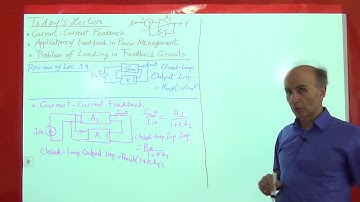 Today's Lecture
• Current-Current Feedback
• Applications of Feedback in Power Management
• Problem of Loading in Feedback Circuits
Review of Lec 39
Gm
K
Closed-Loop
Output Imp.
= Rout(1+GmK)
• Current-Current Feedback
Iin
A_I
K
Iout
Iout/Iin = A_I/(1+KA_I)
Closed-Loop Inp Imp
= Rin/(1+KA_I)
Closed-Loop Output Imp. = Rout(1+KA_I)